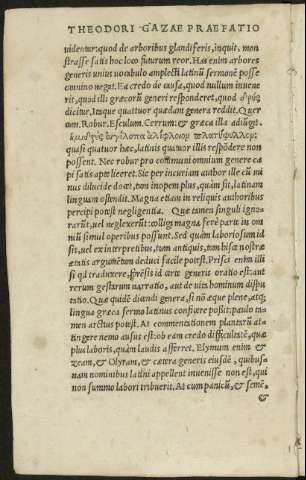 THEODORI GAZAE PRAEFATIO
uidentur: quod de arboribus glandiferis, inquit, mon
strasse satis hoc loco futurum reor. Has enim arbores
generis unius uocabulo amplecti latinū sermonē posse
omnino negat. Ea credo de causa, quod nullum inuene
rit, quod illi græcorū generi responderet, quod δρῦς
dicitur, Itaque quattuor quædam genera reddit. Quer
cum, Robur, Esculum, Cerrum: & græca illa adiūgit.
ἡμερὶς αἰγίλοπα ἁλίφλοιον πλατύφυλλον:
quasi quatuor hæc, latinis quatuor illis respōdere non
possent. Nec robur pro communi omnium genere ca
pi satis apte liceret. Sic per incuriam author ille cū mi
nus dilucide docet, tum inopem plus, quàm sit, latinam
linguam ostendit. Magna etiam in reliquis authoribus
percipi potest negligentia. Quæ tamen singuli igno
rarūt, uel neglexerūt: colligi magna ferè parte in om
niū simul operibus possunt. Sed quàm laboriosum id
sit, uel ex interpretibus, tum antiquis, tum his æ nostræ
ætatis argumētum deduci facile potest. Prisci enim illi
si qd traduxere, præsis id arte generis oratio est: aut
rerum gestarum narratio, aut de uita hominum dispu
tatio. Quæ quidē dicendi genera, si nō æque plene, atq;
lingua græca sermo latinus conficere possit: paulo ta-
men arctius potest. At commentationem plantarū at
tingere nemo ausus est: ob eam credo difficultatē, quæ
plus laboris, quàm laudis afferret. Elymum enim &
zeam, & Olyram, & cætera generis eiusdē, quibus-
nam nominibus latini appellent inuenisse non est, qui
non summo labori tribuerit. At cum panicū, & semē
&